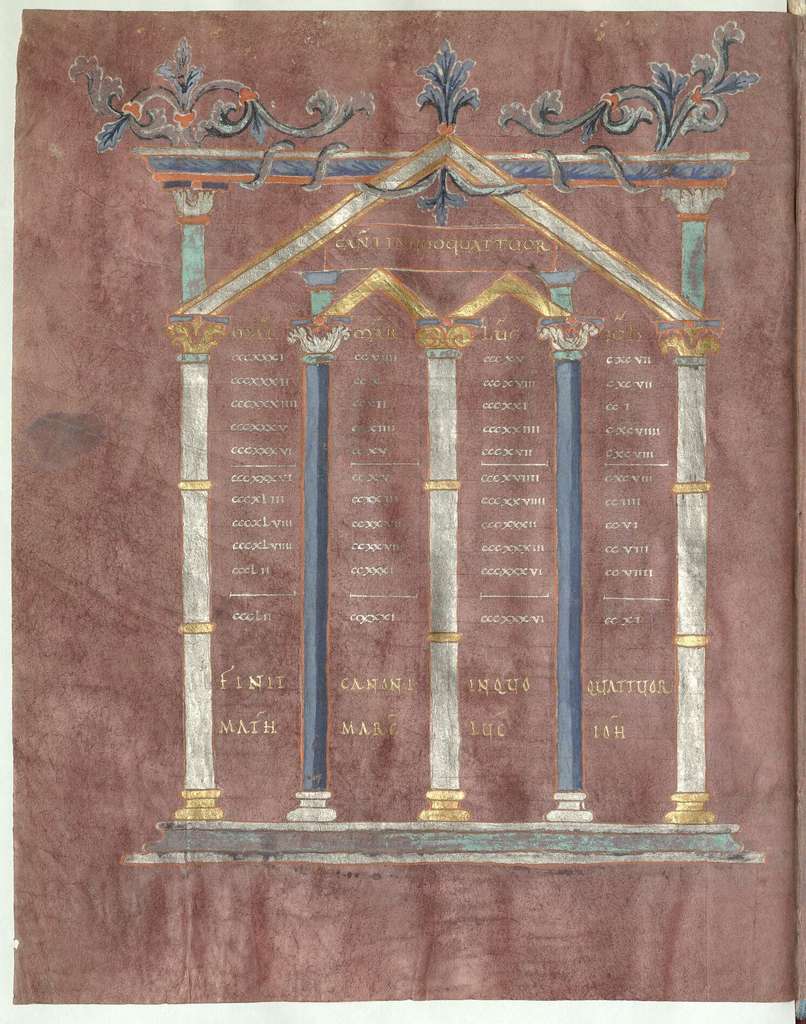 CAN̄ I IN QUO QUATTUOR
MAT̄ MAR̄ LUC̄ IOH̄
CCCXXXI CCVIIII CCCXV CXCVII
CCCXXXII CCX CCCXVIII CXCVII
CCCXXXIIII CCXII CCCXXI CCI
CCCXXXV CCXIIII CCCXXIIII CXCVIIII
CCCXXXVI CCXV CCCXVII CXCVIII
CCCXXXVI CCXV CCCXVIIII CXCVIII
CCCXLIII CCCXXVIIII CCIIII
CCCXLVIII CCXXVII CCCXXXII CCVI
CCCXLVIIII CCXXVIII CCCXXXIII CCVIII
CCCLII CCXXXI CCCXXXVI CCVIIII
CCCLII CCXXXI CCCXXXVI CCXI
FINIT CANON I INQUO QUATTUOR
MATH̄ MARC̄ LUC̄ IOH̄